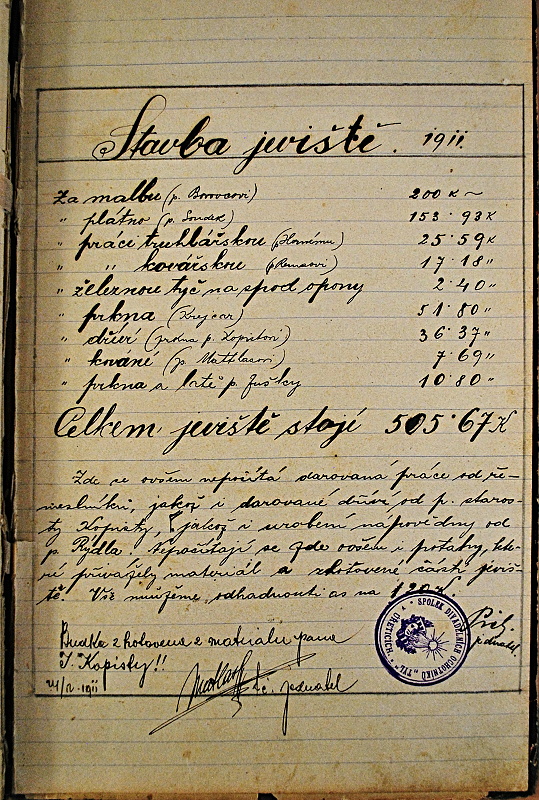 Stavba jeviště. 1911.
Za malbu (p. Borovcovi) 200 K ~
" plátno (p. Soudek) 153·93 K
" práci truhlářskou 25·59 K
" " kovářskou 17·18 "
" železnou tyč na spod opony 2·40 "
" prkna (Krejcar) 51·80 "
" dříví (prkna p. Kopistovi) 36·37 "
" kování (p. Mattlasovi) 7·69 "
" prkna a latě p. Fušky 10·80 "
Celkem jeviště stojí 505·67 K
Zde se ovšem nepočítá darovaná práce od ře-
meslníků, jakož i darované dříví od p. staros-
ty Kopisty, jakož i urobení nápovědny od
p. Rýdla. Nepočítají se zde ovšem i potahy, kte-
ré přivážely materiál a zhotovené části jeviš-
tě. Vše můžeme odhadnouti as na 120 K.
SPOLEK DIVADELNÍCH OCHOTNÍKŮ "TYL"
jednatel.
Budka zhotovena z materiálu pana
J. Kopisty!!
1911
t.č. jednatel